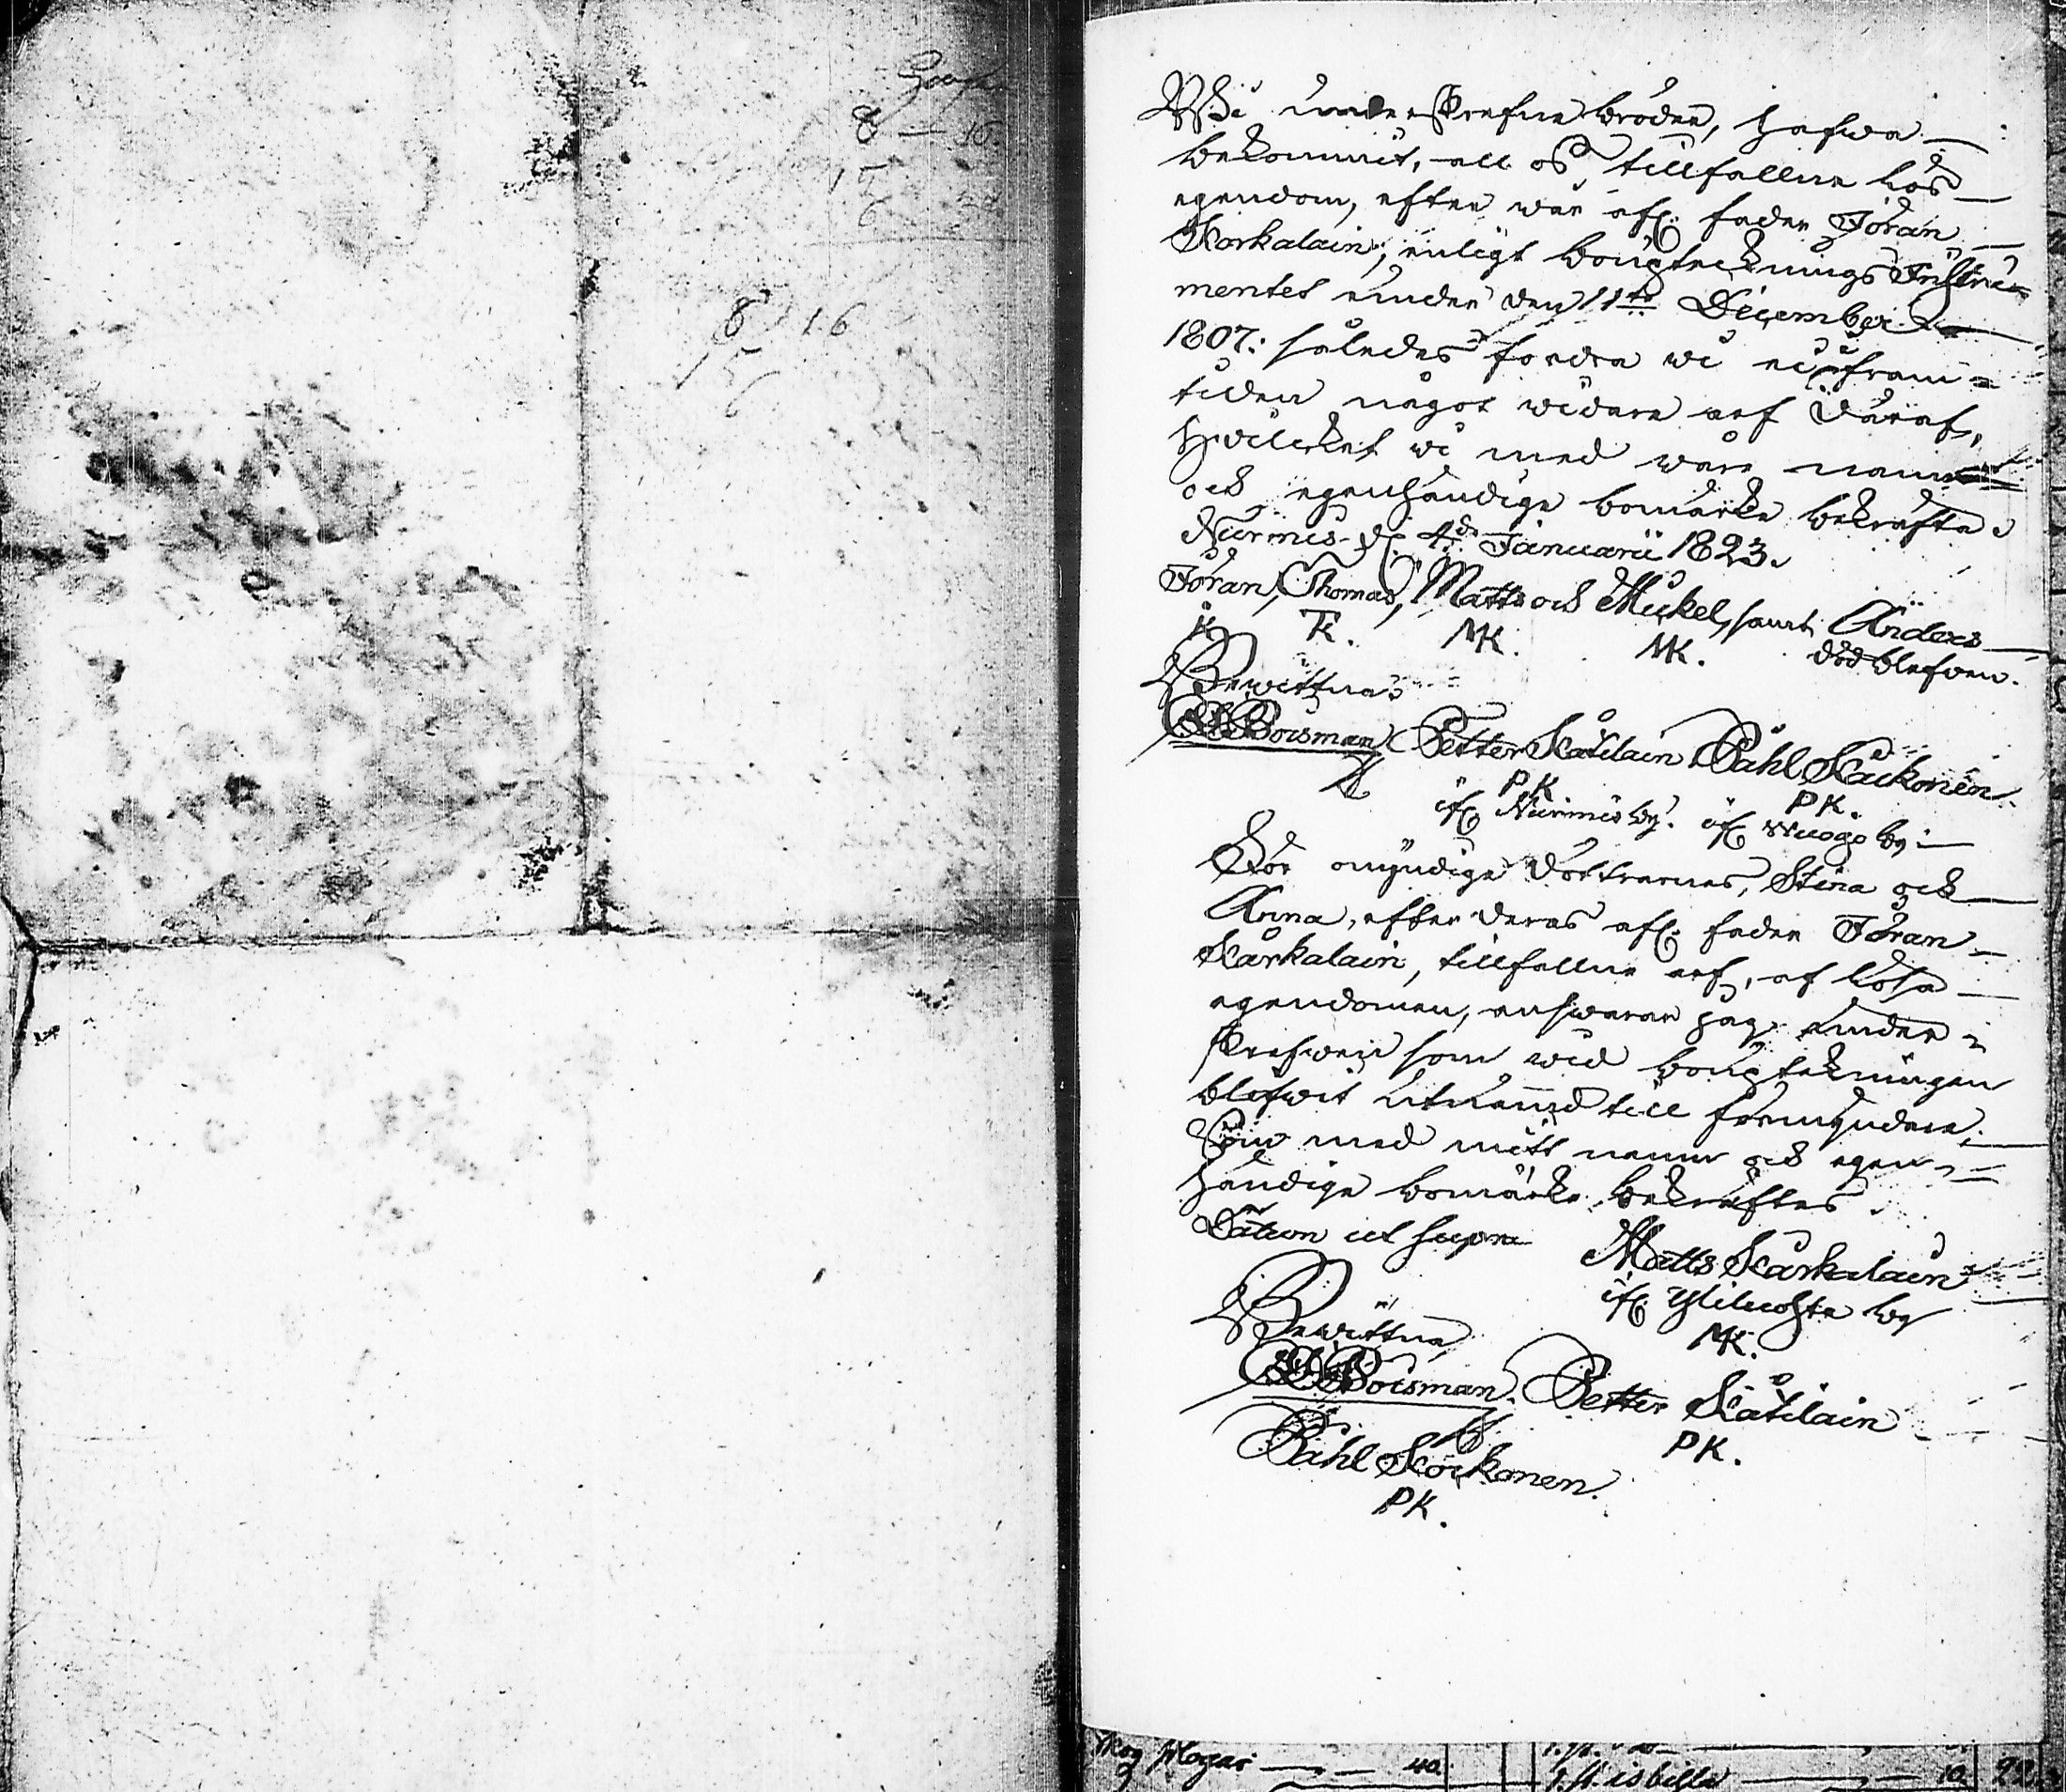 8 — 16.
8 16
Wi underskrefne bröder, hafwa
bekommit, all oß tillfallne lös
egendom, efter wår afl: fader Jöran
Korkalain; enligt Bougtecknings Instru=
mentet under den 11te December
1807: således fordra wi ei i fram=
tiden något widare arf däraf,
hwilcket wi med wåre namn
och egenhändige bomärke bekräfta.
Nurmis d: 4de Januarii 1823.
Jöran, Thomas, Matts och Mickel, samt Anders
IK TK. MK. MK. död blefven.
Bewittna
Boisman Petter Kätilain Påhl Käickönen
PK PK.
ifr: Nurmis by. ifr: Wuogo by:
För omyndige Döttrarnas, Stina och
Anna, efter deras afl: fader Jöran
Karkalain, tillfallne arf, af lösa
egendomen, answarar jag under=
skrefwen som wid bougtekningen
blifwit utnämd till förmyndare,
Som med mitt namn och egen=
händige bomärke bekräftes.
Datum ut supra Matts Karkalain
ifr: Ylikylä by
MK.
Bewittna
Boisman. Petter Kätilain
PK.
Påhl Köickonen.
PK.
40